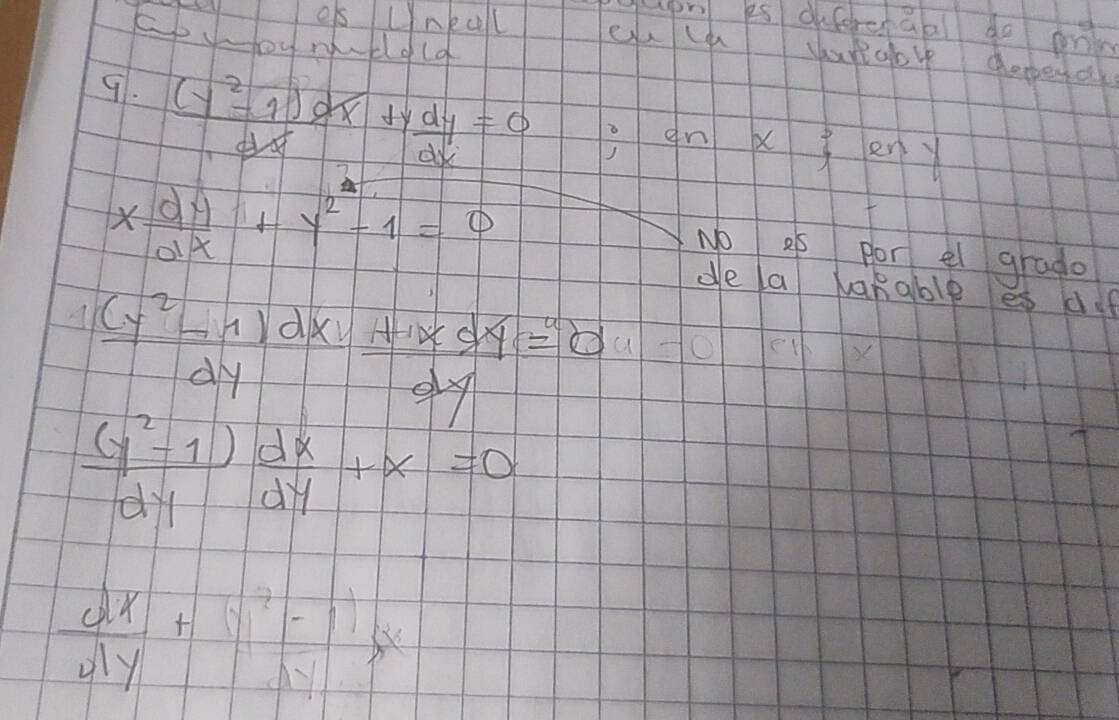 es lineal en la variable depend
9. (y²-1)dx/dx +y dy/dx = 0 ; en x ; en y
x dy/dx + y² - 1 = 0
No es por el grado
de la variable es
(y² - 1) dx/dy + x dy/dy = 0
(y²-1)/dy dx/dy + x = 0
dx/dy + (y² - 1)/dy x